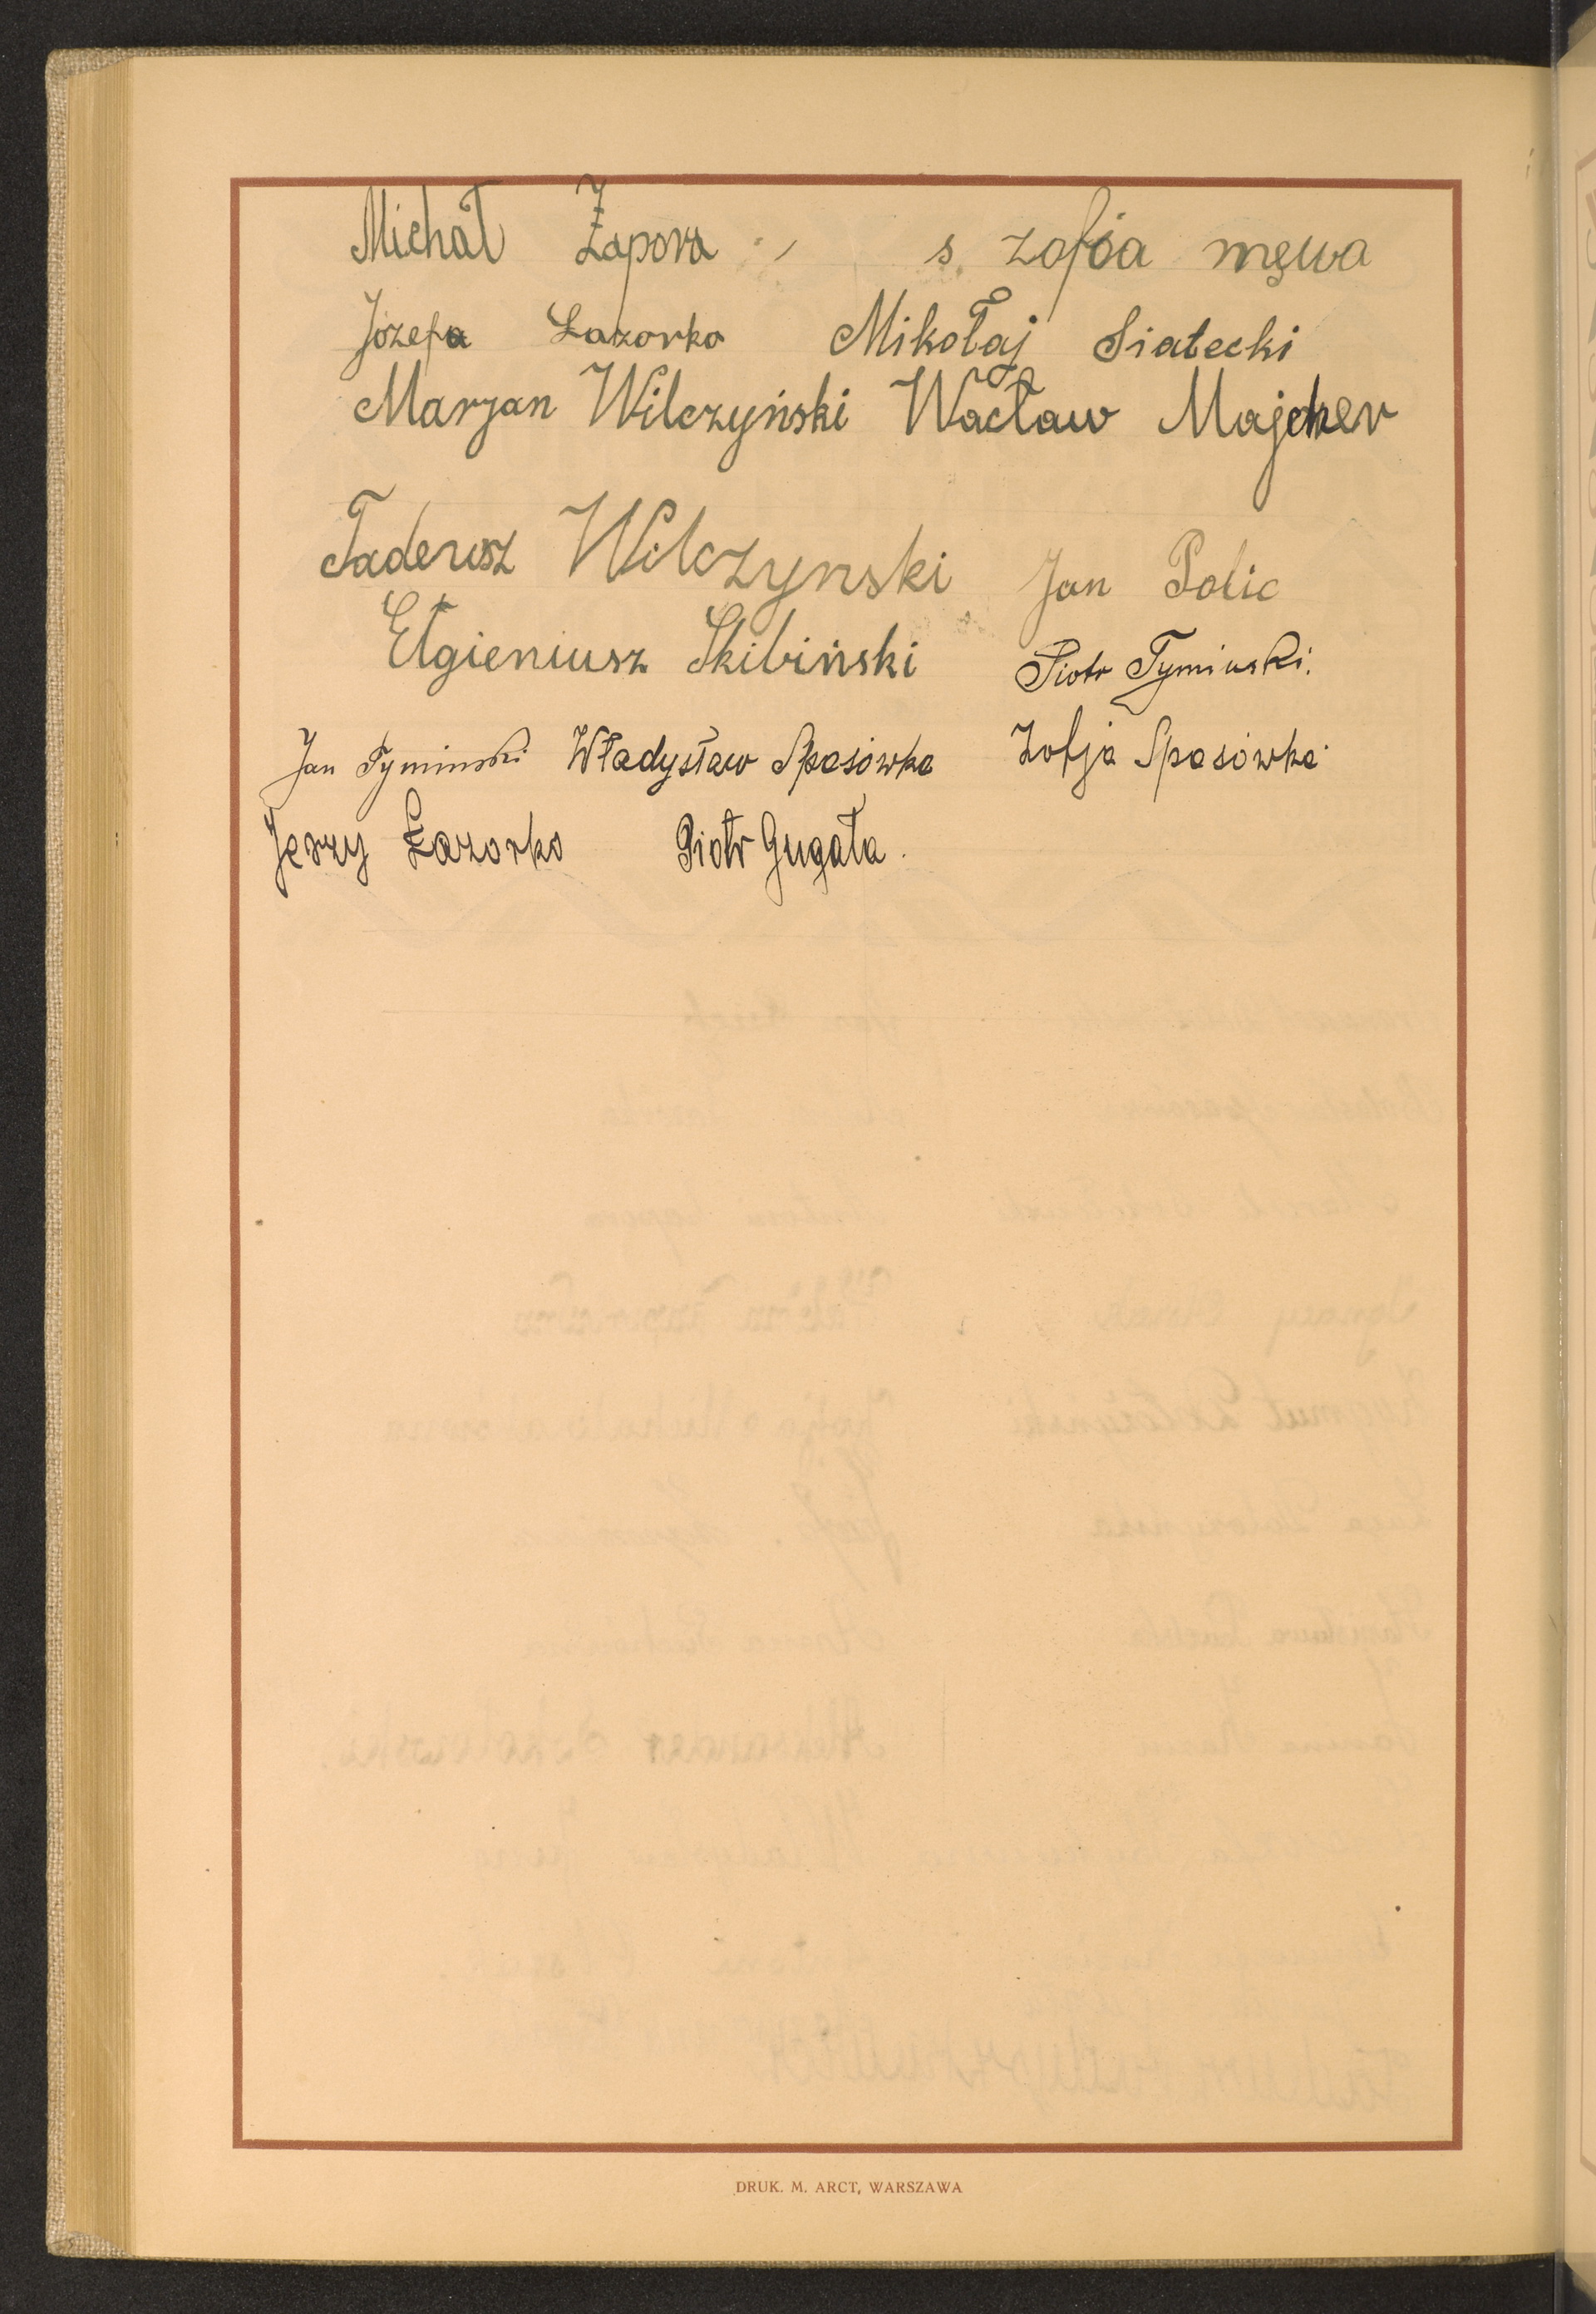 Michał Zapora s. zofia męwa
Józefa Łazorko Mikołaj Siatecki
Maryan Wilczyński Wacław Majcher
Taderosz Wilczynski Jan Polic
Ełgieniusz Skibiński Piotr Tyminski.
Jan Tyminski Władysław Spasówka Zofja Spasówka
Jerzy Łazorko Piotr Gugała.
DRUK. M. ARCT, WARSZAWA